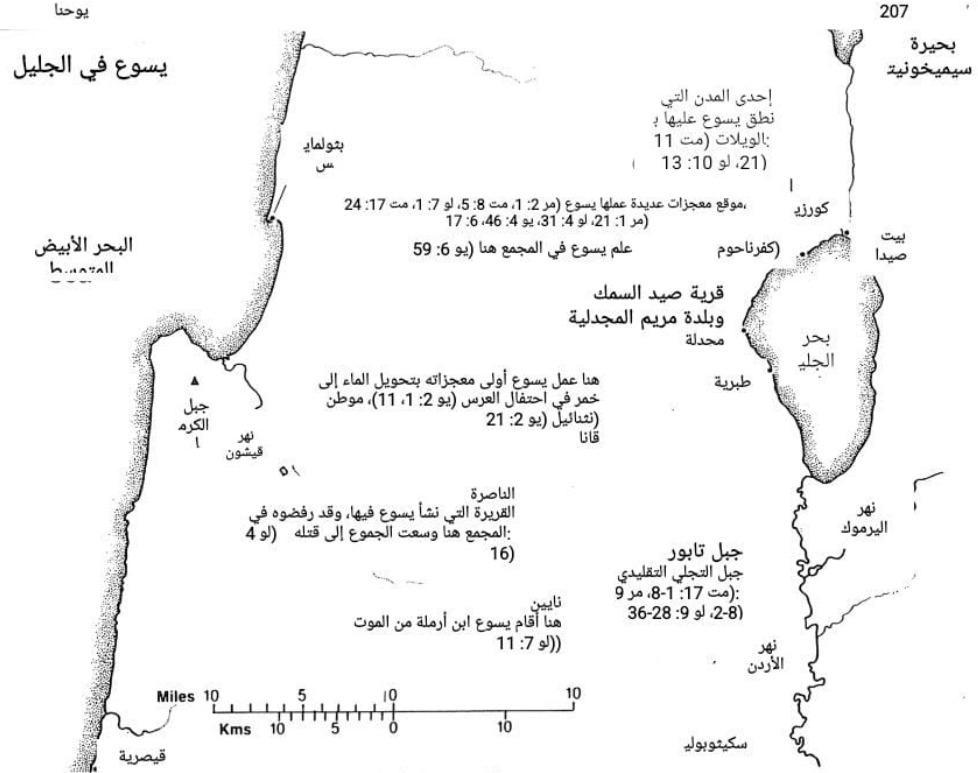 يوحنا
207
يسوع في الجليل
بحيرة
سيميخونيت
إحدى المدن التي
نطق يسوع عليها ب
:الويلات (مت 11
(21، لو 10: 13
بثولماي
س
كورزي
ا
،موقع معجزات عديدة عملها يسوع (مر 2: 1، مت 8: 5، لو 7: 1، مت 17: 24
(مر 1: 21، لو 4: 31، يو 4: 46، 6: 17
(كفرناحوم
علم يسوع في المجمع هنا (يو 6: 59
بيت
صيدا
البحر الأبيض
المتوسط
قرية صيد السمك
وبلدة مريم المجدلية
محدلة
بحر
الجلي
طبرية
هنا عمل يسوع أولى معجزاته بتحويل الماء إلى
خمر في احتفال العرس (يو 2: 1، 11)، موطن
(نثنائيل (يو 2: 21
قانا
جبل
الكرم
ا
نهر
قيشون
الناصرة
القريرة التي نشأ يسوع فيها، وقد رفضوه في
:المجمع هنا وسعت الجموع إلى قتله (لو 4
(16
نهر
اليرموك
جبل تابور
جبل التجلي التقليدي
:(مت 17: 1-8، مر 9
(2-8، لو 9: 28-36
نايين
هنا أقام يسوع ابن أرملة من الموت
((لو 7: 11
نهر
الأردن
Miles 10 5 0 10
Kms 10 5 0 10
سكيثوبولي
قيصرية